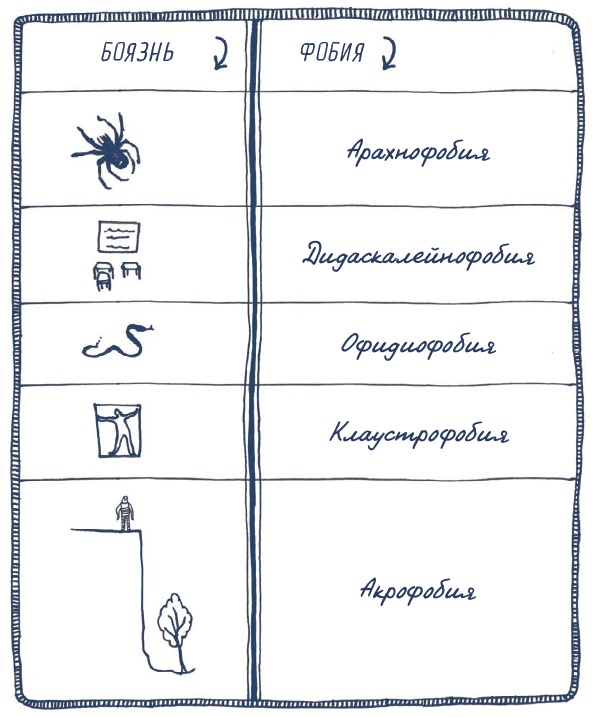 БОЯЗНЬ ФОБИЯ
Арахнофобия
Дидаскалейнофобия
Офидиофобия
Клаустрофобия
Акрофобия